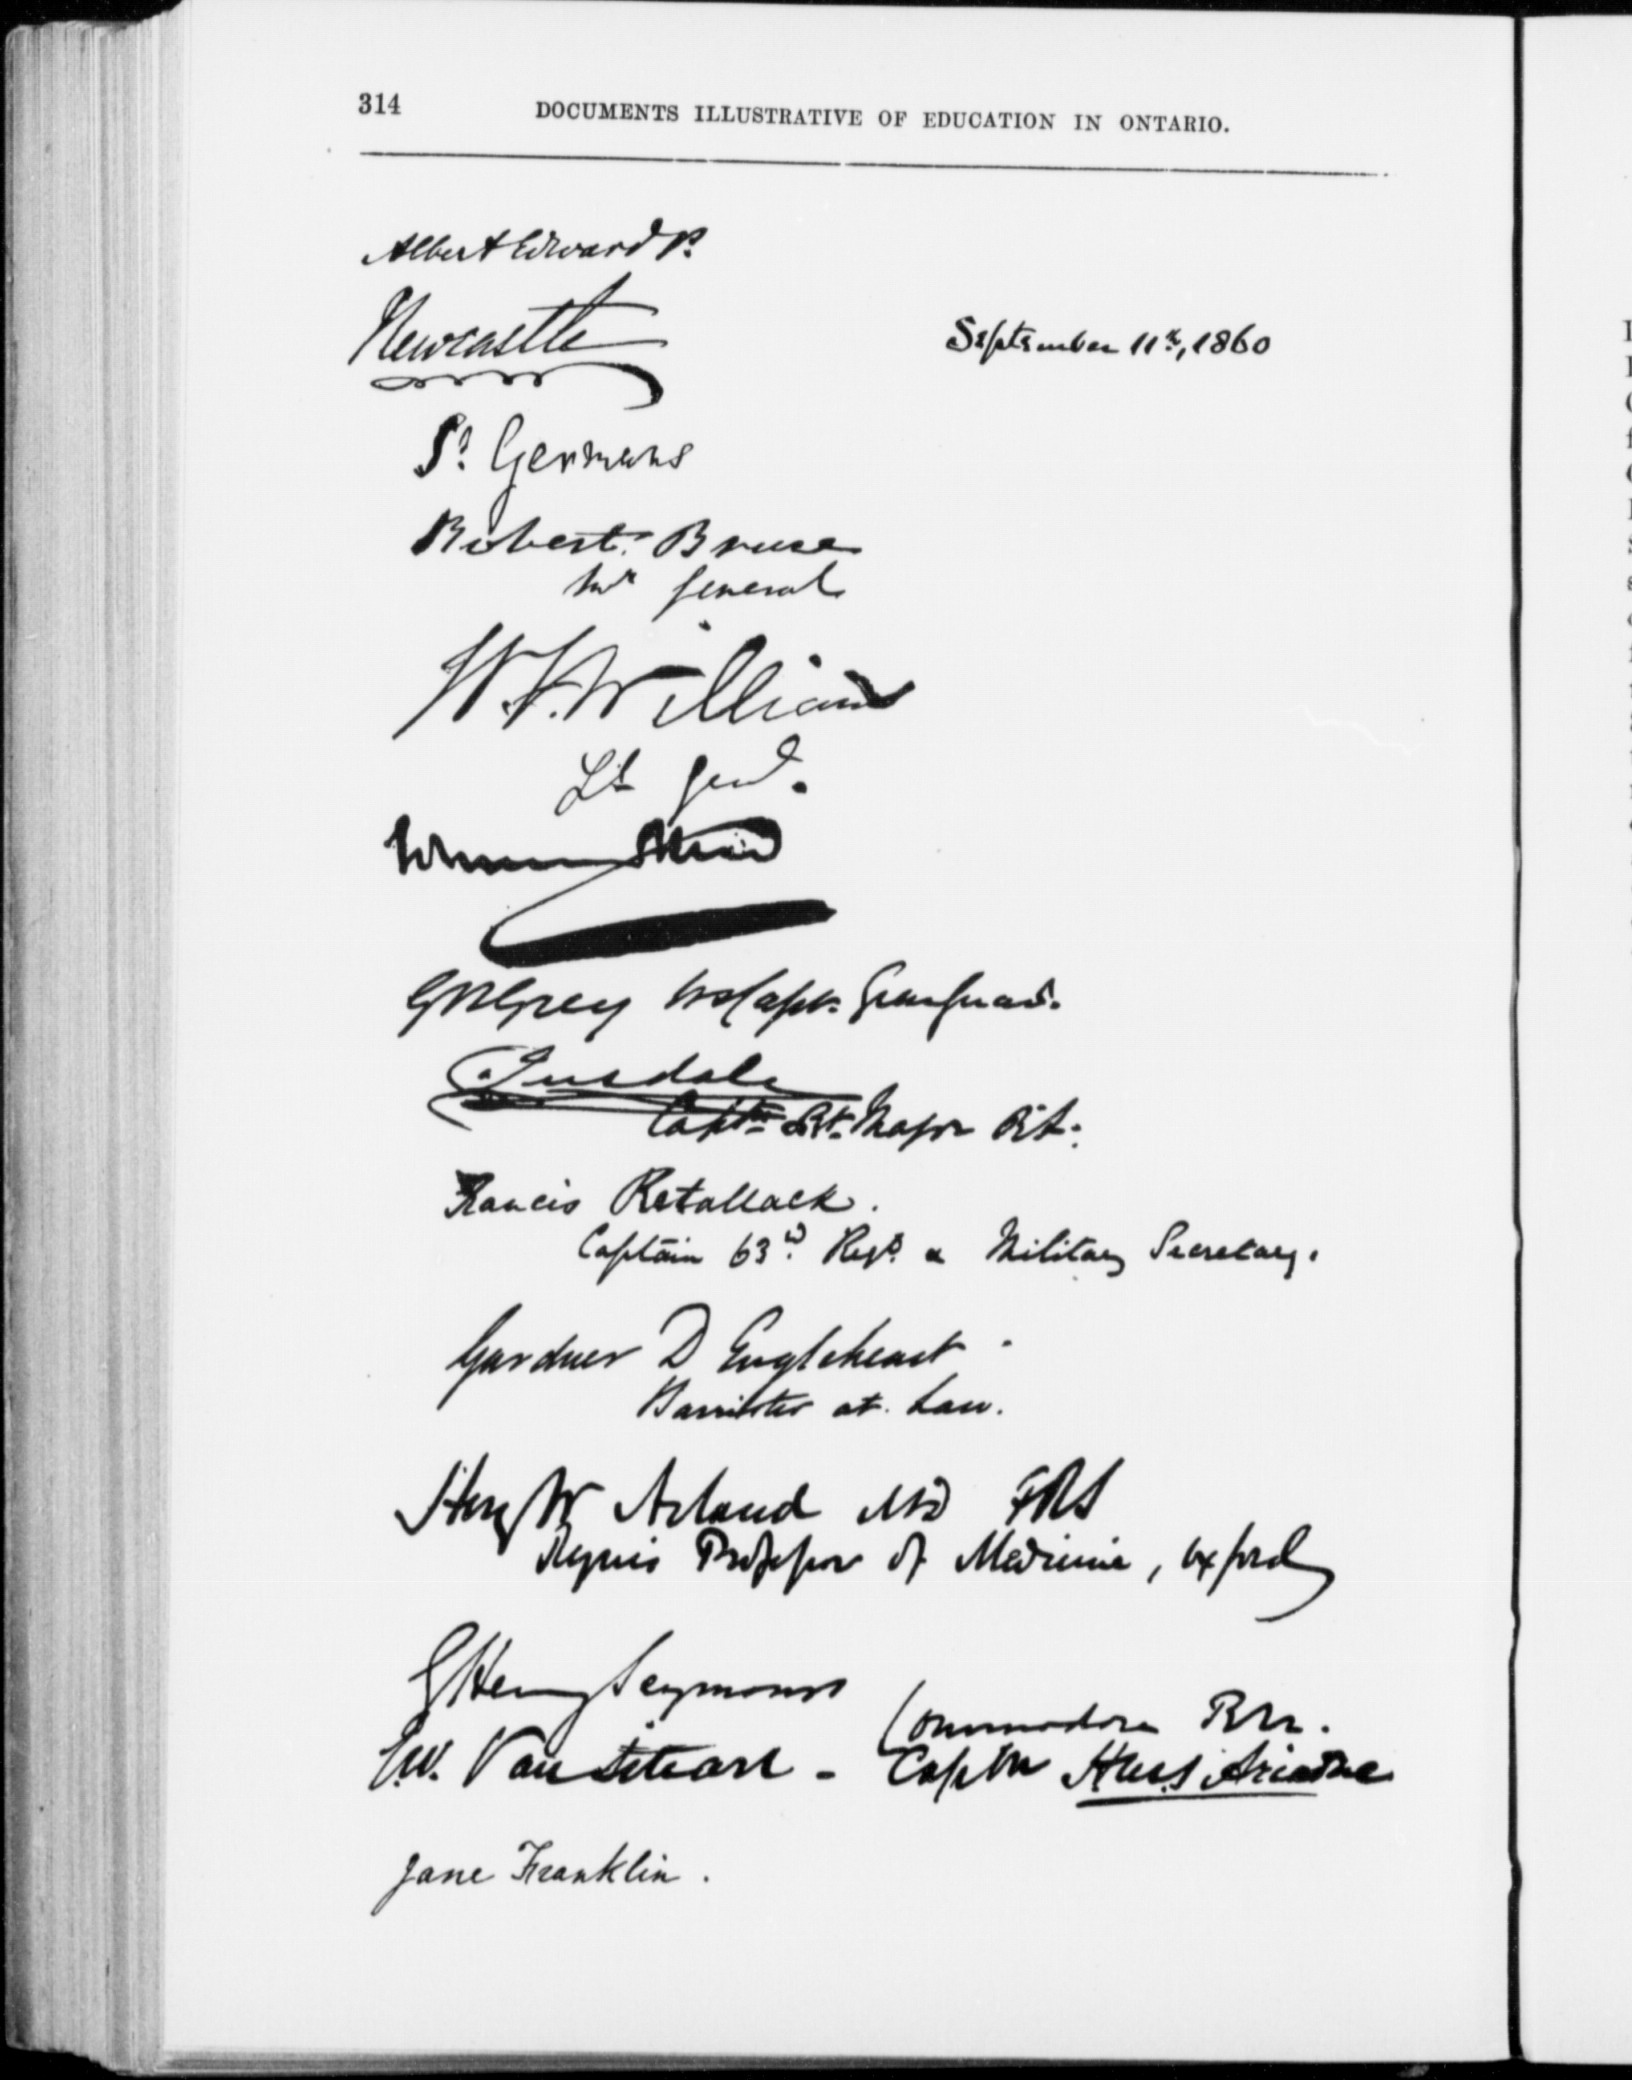 314 DOCUMENTS ILLUSTRATIVE OF EDUCATION IN ONTARIO.
Albert Edward P.
Newcastle
September 11th, 1860
St. Germans
Robert Bruce
General
W. F. Williams
Lt Genl.
G Grey Capt. Gren Guards.
Teesdale
Captn & Bt. Major R.A.
Francis Retallack.
Captain 63rd. Regt. & Military Secretary.
Gardner D Engleheart
Barrister at Law.
Henry W Acland MD FRS
Regius Professor of Medicine, Oxford
G Henry Seymour
Commodore RN.
E.W. Vansittart - Captn H.M.S Ariadne
Jane Franklin.